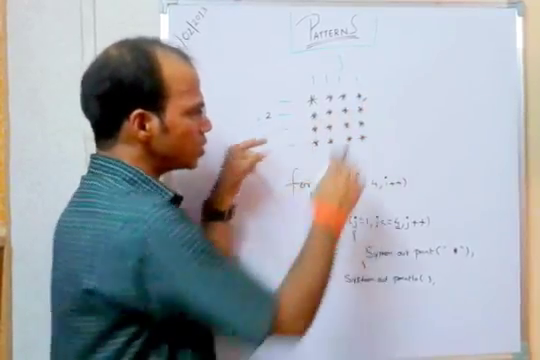 /02/2013
PATTERNS
* * * *
2 * * * *
* * * *
* * * *
for 4, i++)
(j=1, j<=4, j++)
{
System out print(" *"),
}
System out println( ),